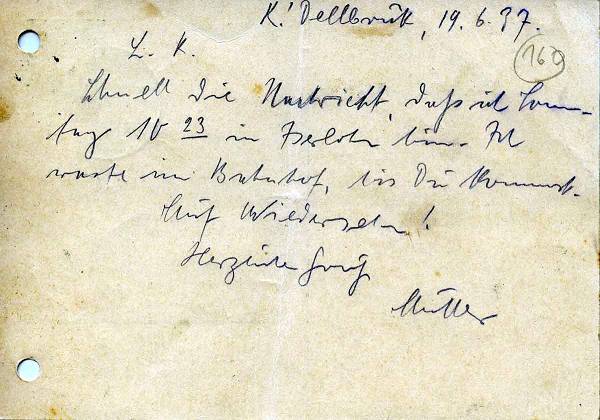 K.' Dellbrück, 19.6.37.
160
L. K.
Schnell die Nachricht, daß ich Sonn-
tag 10 23 in Iserlohn bin. Ich
warte im Bahnhof, bis Du kommst.
Auf Wiedersehn!
Herzliche Grüße
Mutter